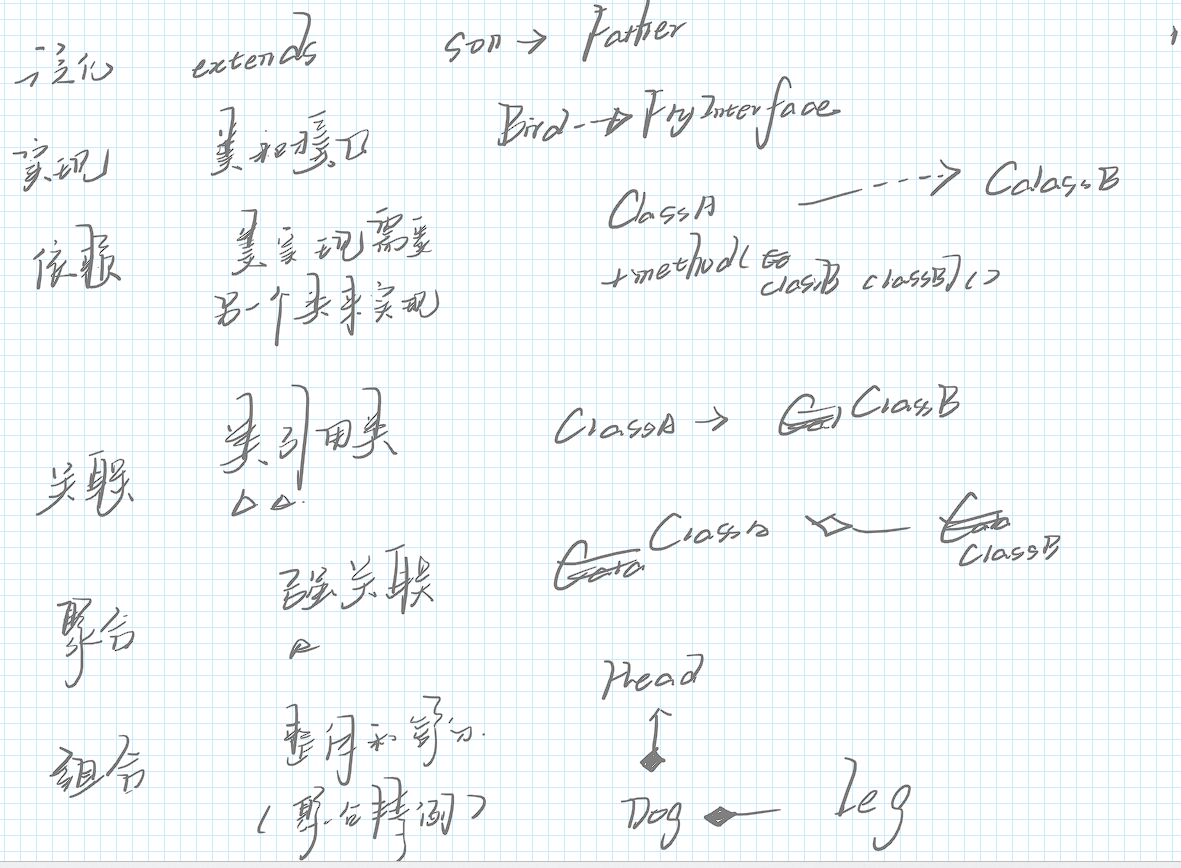 泛化 extends son → Father
实现 类和接口 Bird--→ FryInterface
依赖 类实现需要 ClassA ----> CalassB
另一个类来实现 +method( classB classB)()
关联 类引用类 ClassA → ClassB
聚合 强关联 ClassA ClassB
Head
组合 整体和部分.
(聚合特例) Dog leg